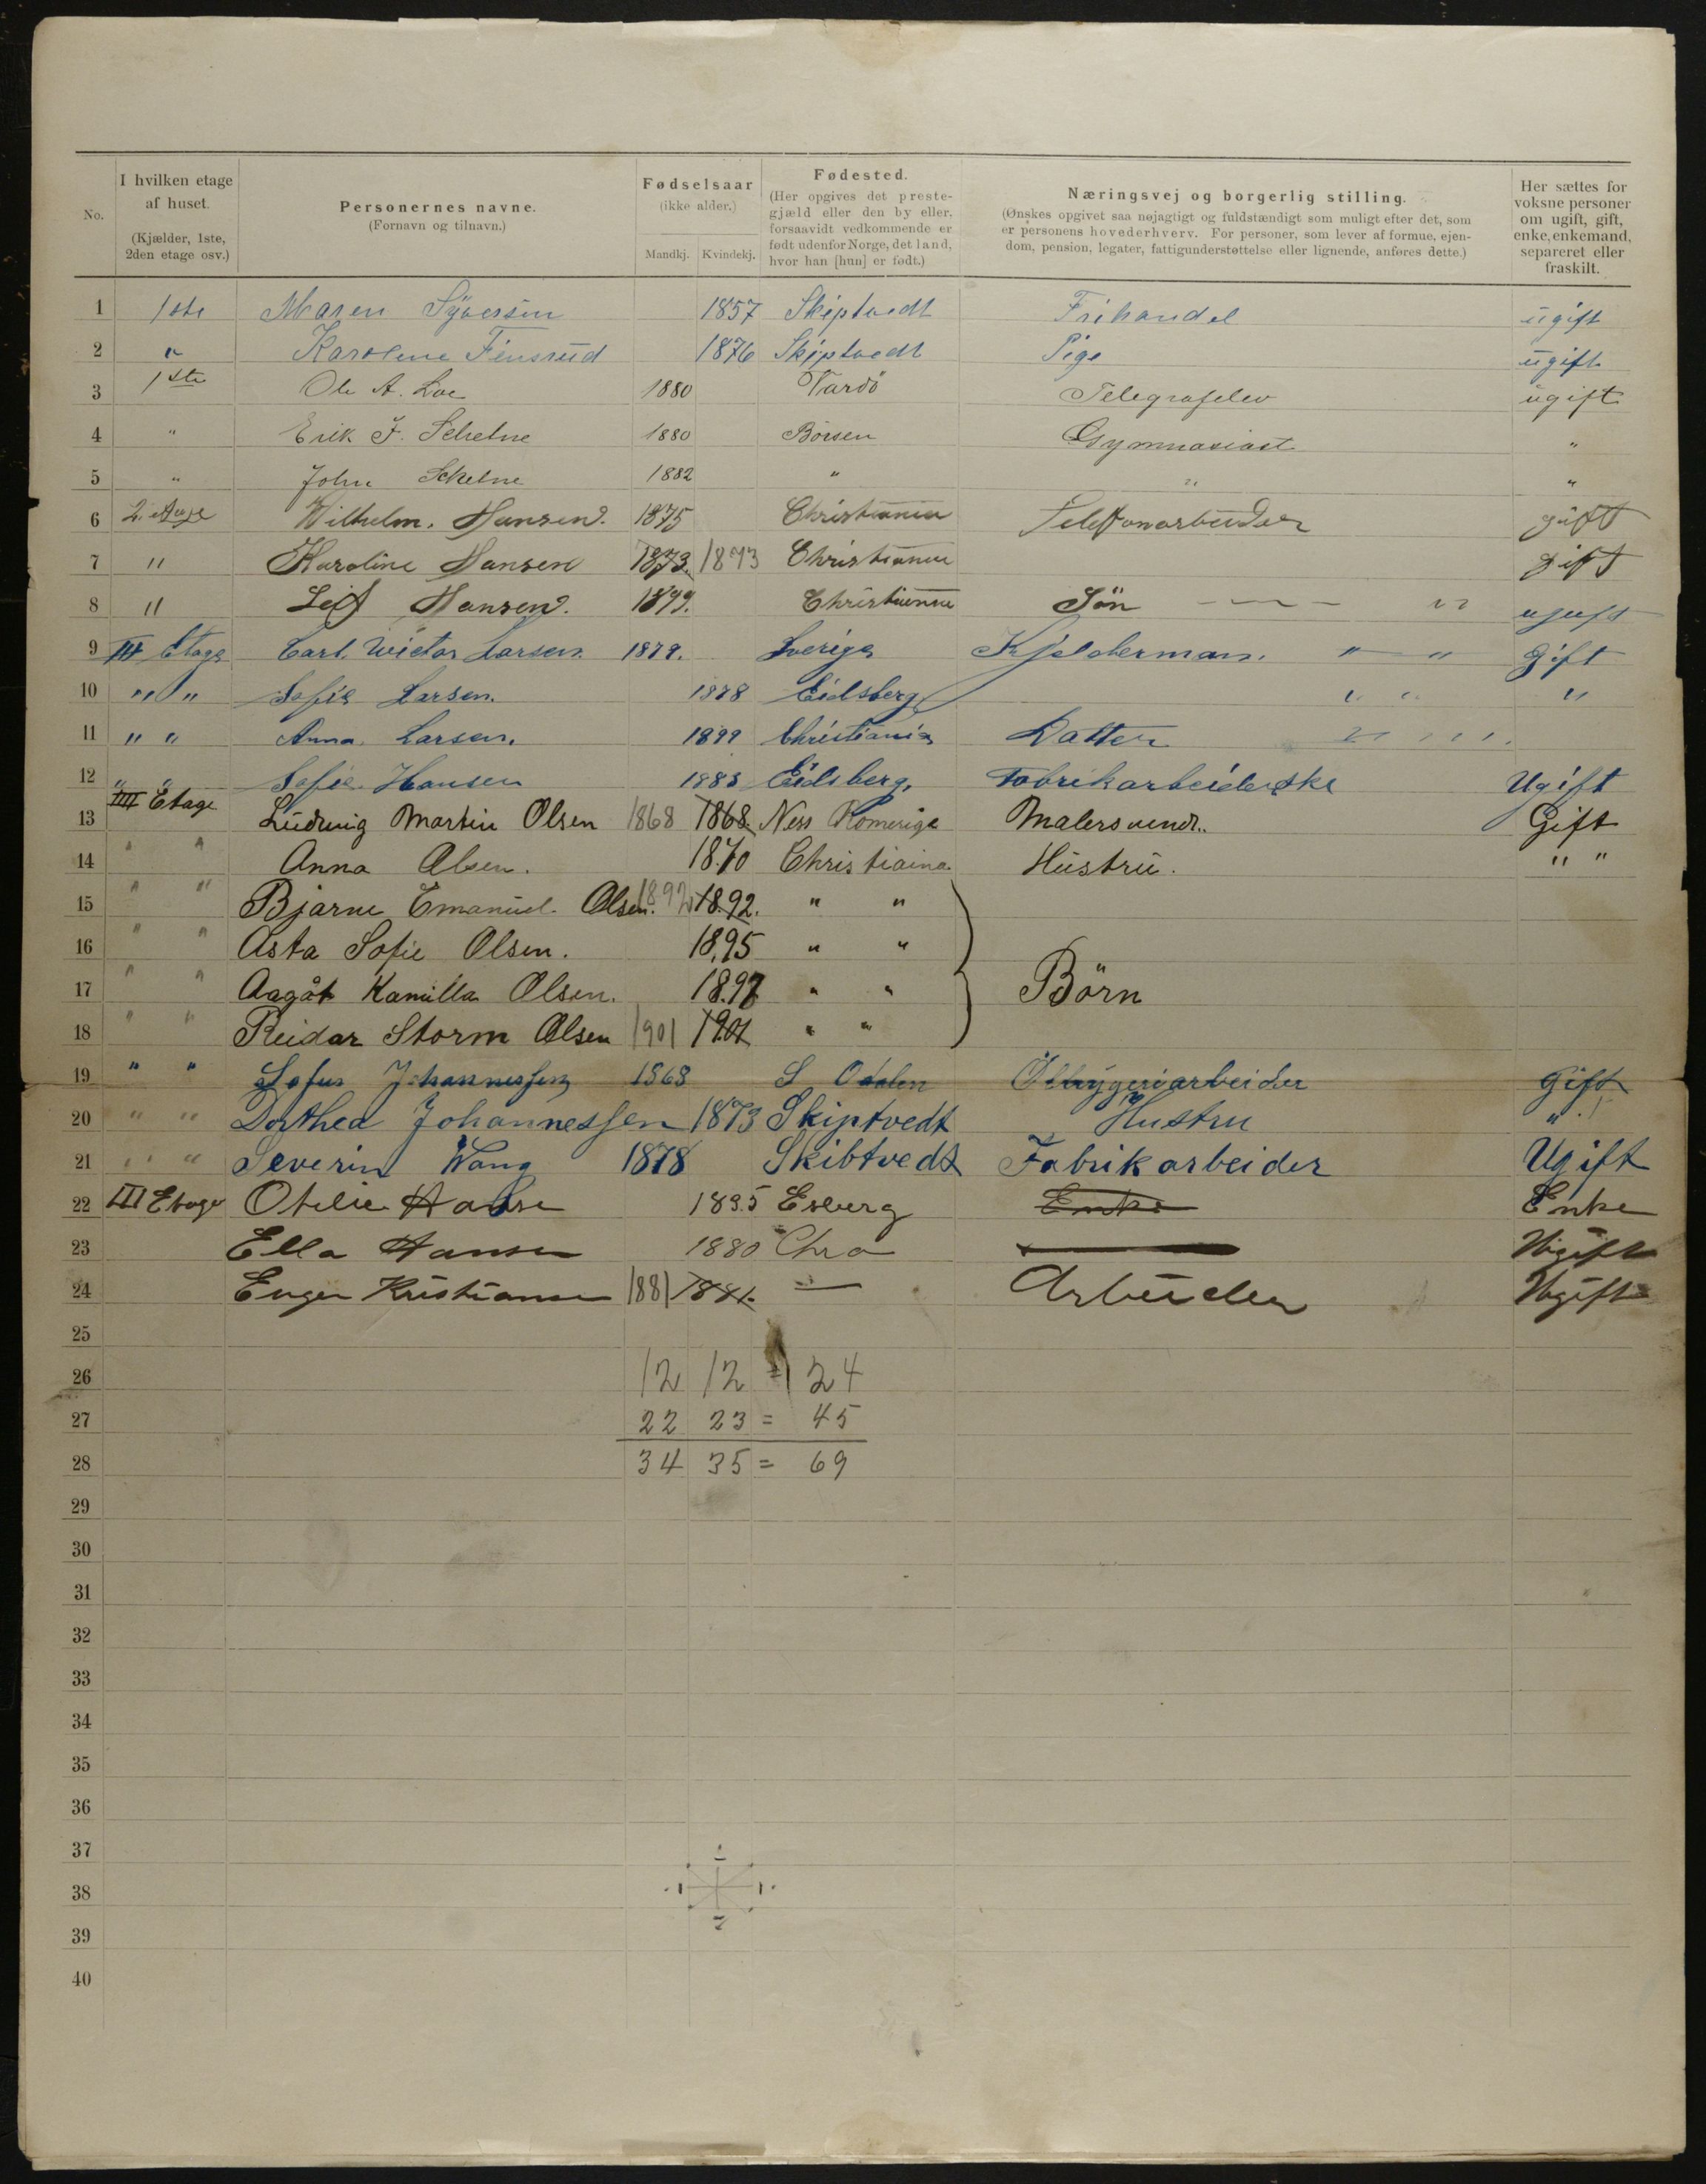 No.
I hvilken etage af huset.
(Kjælder, 1ste, 2den etage osv.)
Personernes navne.
(Fornavn og tilnavn.)
Fødselsaar
(ikke alder.)
Mandkj. Kvindekj.
Fødested.
(Her opgives det prestegjæld eller den by eller, forsaavidt vedkommende er født udenfor Norge, det land, hvor han [hun] er født.)
Næringsvej og borgerlig stilling.
(Ønskes opgivet saa nøjagtigt og fuldstændigt som muligt efter det, som er personens hovederhverv. For personer, som lever af formue, ejendom, pension, legater, fattigunderstøttelse eller lignende, anføres dette.)
Her sættes for voksne personer om ugift, gift, enke, enkemand, separeret eller fraskilt.
1 1ste Maren Syversen 1857 Skiptvedt Frihandel ugift
2 " Karolene Finsrud 1876 Skiptvedt Pige ugift
3 1ste Ole A. Loe 1880 Vardö Telegrafelev ugift
4 " Erik F. Schelne 1880 Börsen Gymnasiast "
5 " John Schelne 1882 " " "
6 2. etage Wilhelm. Hansen. 1875 Christiania Telefonarbeider gift
7 " Karoline Hansen 1873. 1873 Christiania gift
8 " Leif Hansen. 1899. Christiania Sön " ugift
9 III Etage Carl Wictor Larsen. 1879. Sverige Kjelderman. " " Gift
10 " " Sofie Larsen. 1878 Eidsberg " " "
11 " " Anna Larsen. 1899 Christiania Datter " "
12 " " Sofie Hansen 1883 Eidsberg. Fabrikarbeiderske Ugift
13 IIII Etage Ludwig Martin Olsen 1868 1868. Ness Romerige Malersvend.. Gift
14 " " Anna Olsen. 1870 Christiaina Hustru. " "
15 " " Bjarne Emanuel Olsen. 1892 18.92. " "
16 " " Asta Sofie Olsen. 18.95 " "
17 " " Aagåt Kamilla Olsen. 18.97 " " Börn
18 " " Reidar Storm Olsen 1901 1901 " "
19 " " Sofus Johannessen 1868 S Odalen Ölbryggeriarbeider Gift
20 " " Dorthea Johannessen 1873 Skiptvedt Hustru "
21 " " Severin Wang 1878 Skibtvedt Fabrikarbeider Ugift
22 III Etage Otelie 1835 Esberg Enke Enke
23 Ella Hansen 1880 Chra Ugift
24 Kristiansen 1881 1881. — Arbeider Ugift
25
26 12 12 = 24
27 22 23 = 45
28 34 35 = 69
29
30
31
32
33
34
35
36
37
38
39
40